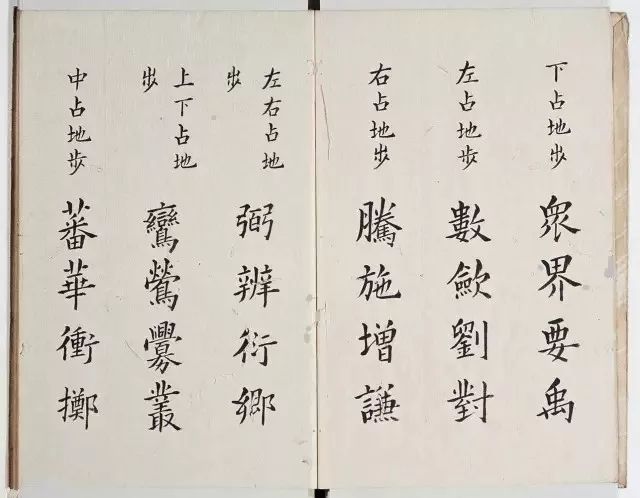 下占地步
眾界要禹
左占地步
數斂劉對
右占地步
騰施增謙
左右占地
步
弼辨衍鄉
上下占地
步
鸞鶯爨叢
中占地步
蕃華衝擲